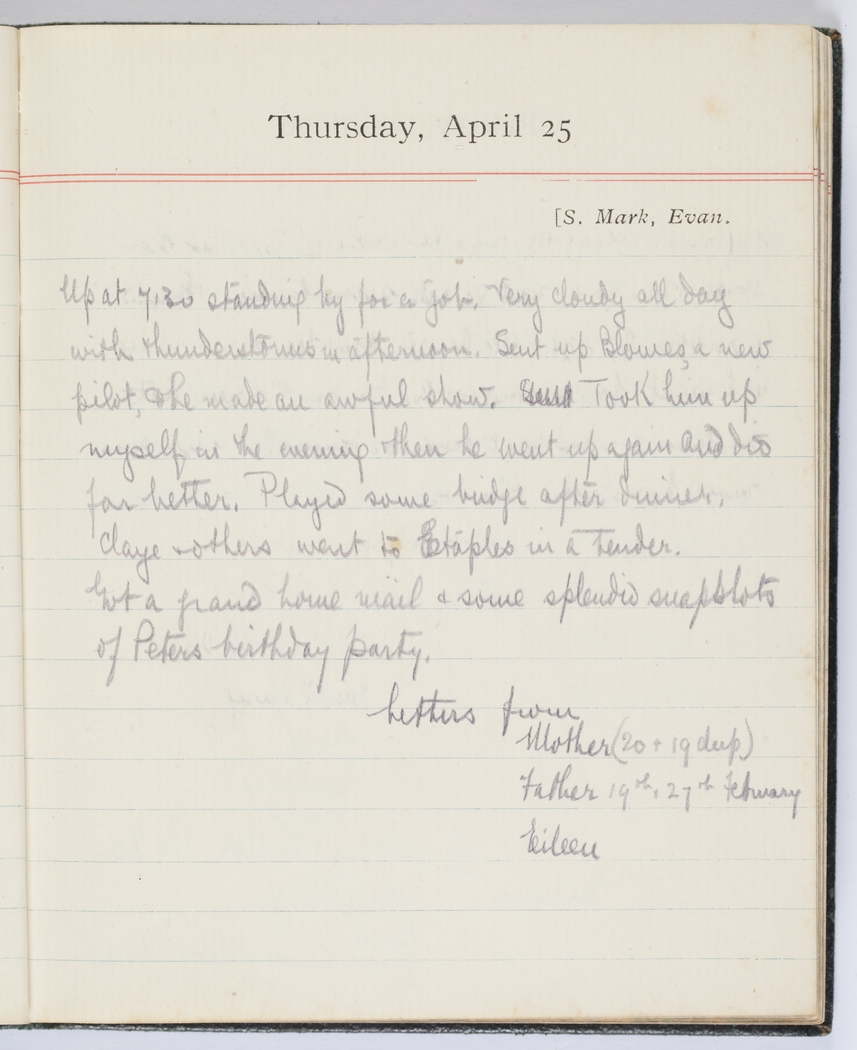 Thursday, April 25
[S. Mark, Evan.
Up at 7.30 standing by for a job. Very cloudy all day
with thunderstorms in afternoon. Sent up Blowes, a new
pilot, & he made an awful show. Took him up
myself in the evening then he went up again and did
far better. Played some bridge after dinner.
Claye & others went to Etaples in a tender.
Got a grand home mail & some splendid snapshots
of Peters birthday party.
Letters from
Mother (20 + 19 dup)
Father 19th, 27th February
Eileen